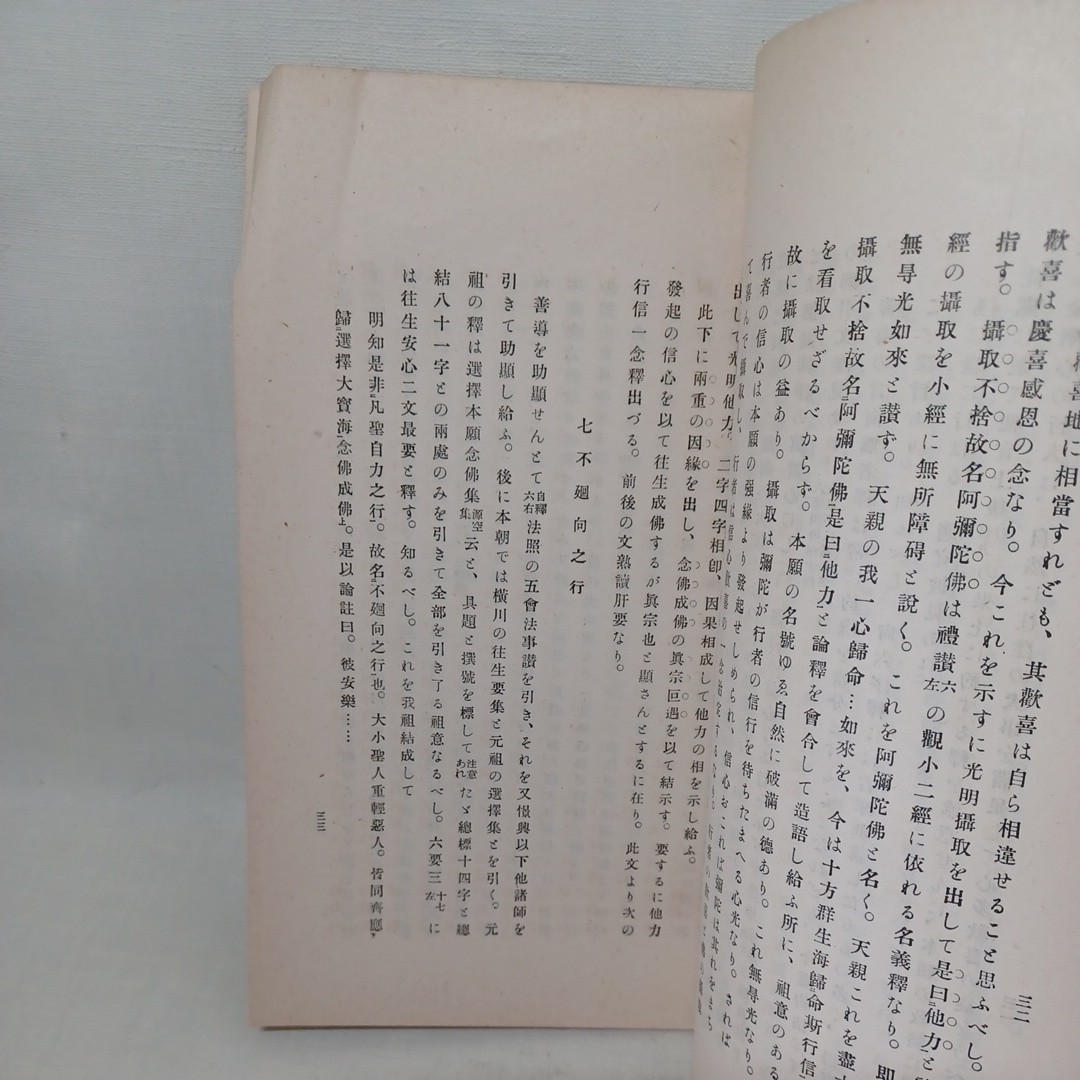 歡喜は慶喜感恩の念なり。今これを示すに光明攝取を出して是曰他力と
指す。攝取不捨故名阿彌陀佛は禮讃六左の觀小二經に依れる名義釋なり。即
經の攝取を小經に無所障碍と說く。これを阿彌陀佛と名く。天親これを盡十
無㝵光如來と讃ず。天親の我一心歸命…如來を、今は十方群生海歸命斯行信
攝取不捨故名阿彌陀佛是曰他力と論釋を會合して造語し給ふ所に、祖意のある
を看取せざるべからず。本願の名號ゆゑ自然に破滿の德あり。これ無㝵光なり。
故に攝取の益あり。攝取は彌陀が行者の信行を待ちたまへる心光なり。されば
行者の信心は本願の强緣より發起せしめられ、信心おこれば彌陀は其れをまち
て喜んで攝取し、
出して光明他力、二字四字相卽、因果相成して他力の相を示し給ふ。
此下に兩重の因緣を出し、念佛成佛の眞宗回遇を以て結示す。要するに他力
發起の信心を以て往生成佛するが眞宗也と顯さんとするに在り。此文より次の
行信一念釋出づる。前後の文熟讀肝要なり。
七不廻向之行
善導を助顯せんとて自釋六右法照の五會法事讃を引き、それを又憬興以下他諸師を
引きて助顯し給ふ。後に本朝では橫川の往生要集と元祖の選擇集とを引く。元
祖の釋は選擇本願念佛集源空集云と、具題と撰號を標して注意あれたゞ總標十四字と總
結八十一字との兩處のみを引きて全部を引き了る祖意なるべし。六要三十七左に
は往生安心二文最要と釋す。知るべし。これを我祖結成して
明知是非凡聖自力之行。故名不廻向之行也。大小聖人重輕惡人。皆同齊應
歸選擇大寶海念佛成佛上。是以論註曰。彼安樂……
三三
三二